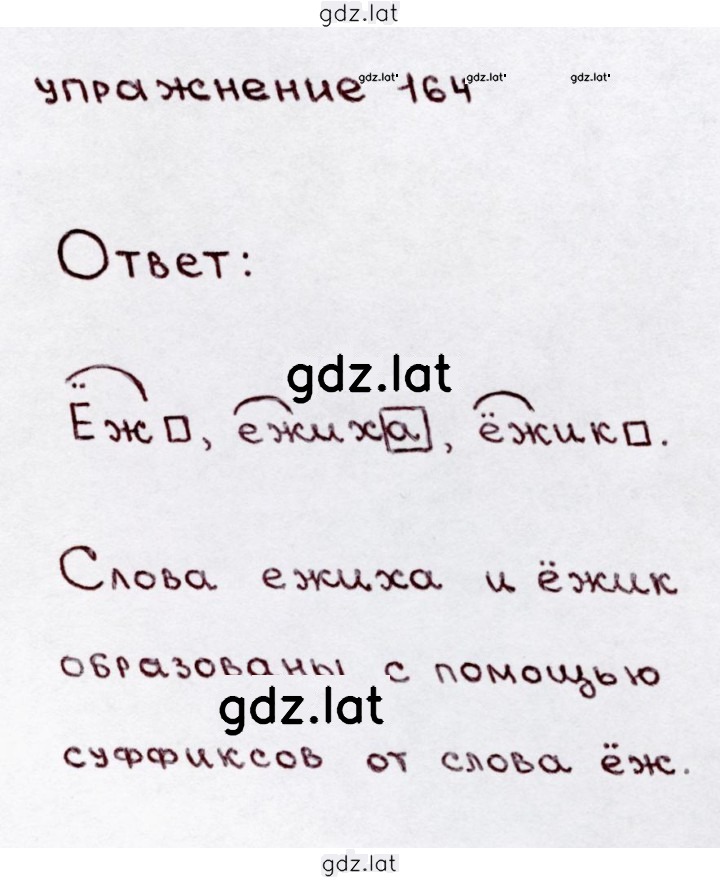 gdz.lat
упражнение 164
gdz.lat gdz.lat gdz.lat
Ответ:
gdz.lat
Ёж, ежиха, ёжик.
Слова ежиха и ёжик
образованы с помощью
gdz.lat
суффиксов от слова ёж.
gdz.lat